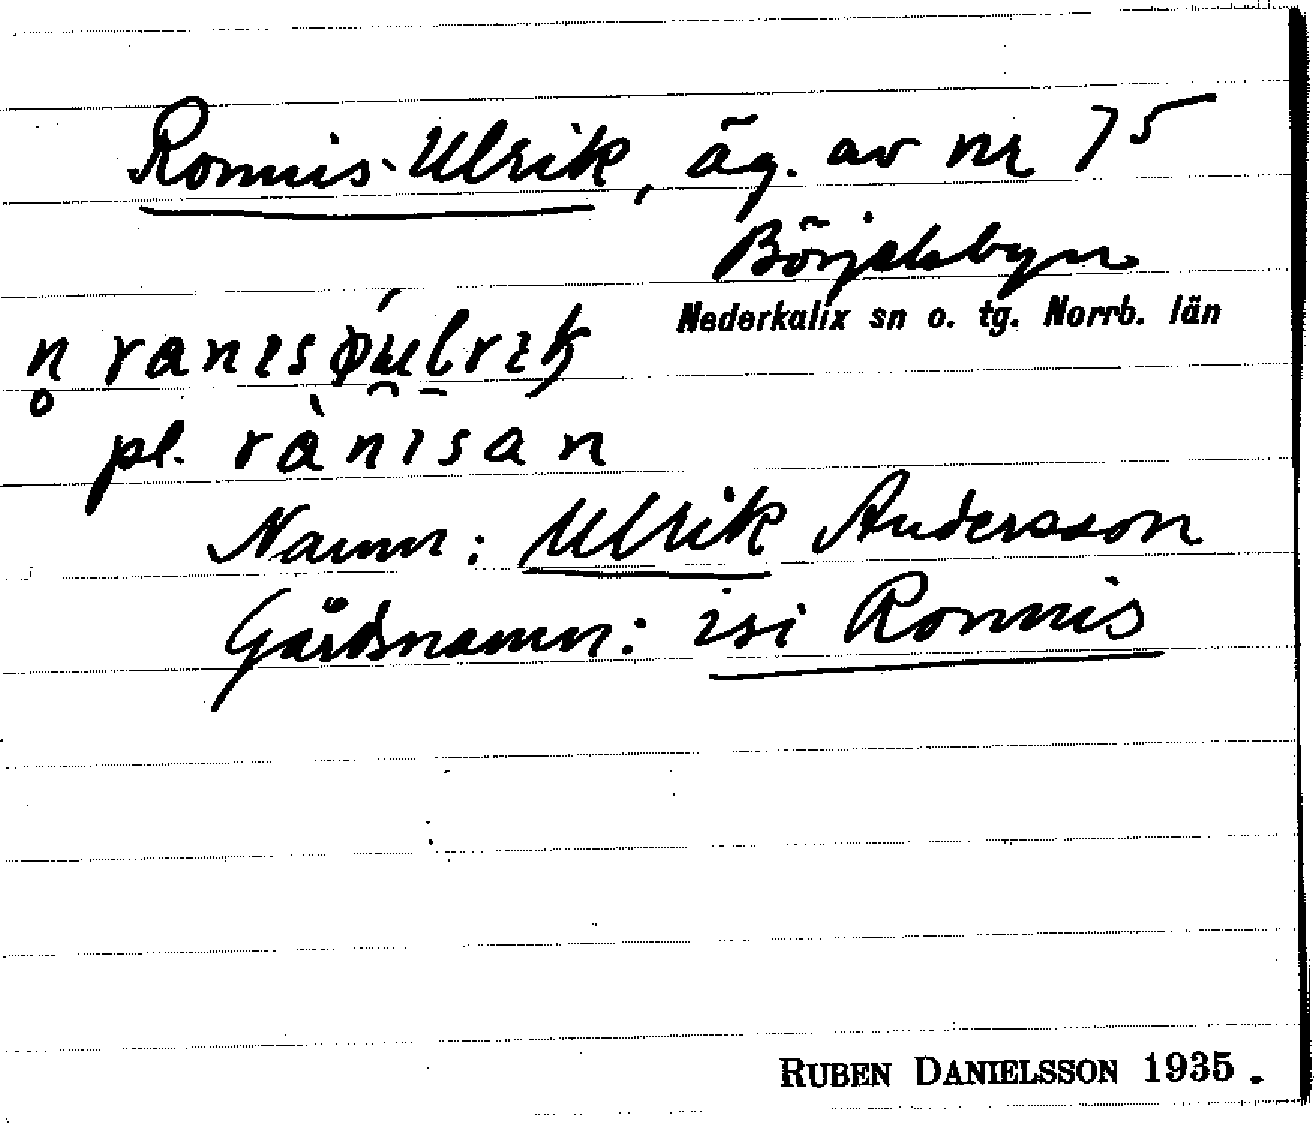 Ronnis-Ulrik, äg. av nr 75
Börjelsbyn
Nederkalix sn o. tg. Norrb. län
pl. rànısan
Namn: Ulrik Andersson
Gårdsnamn: isi Ronnis
RUBEN DANIELSSON 1935.